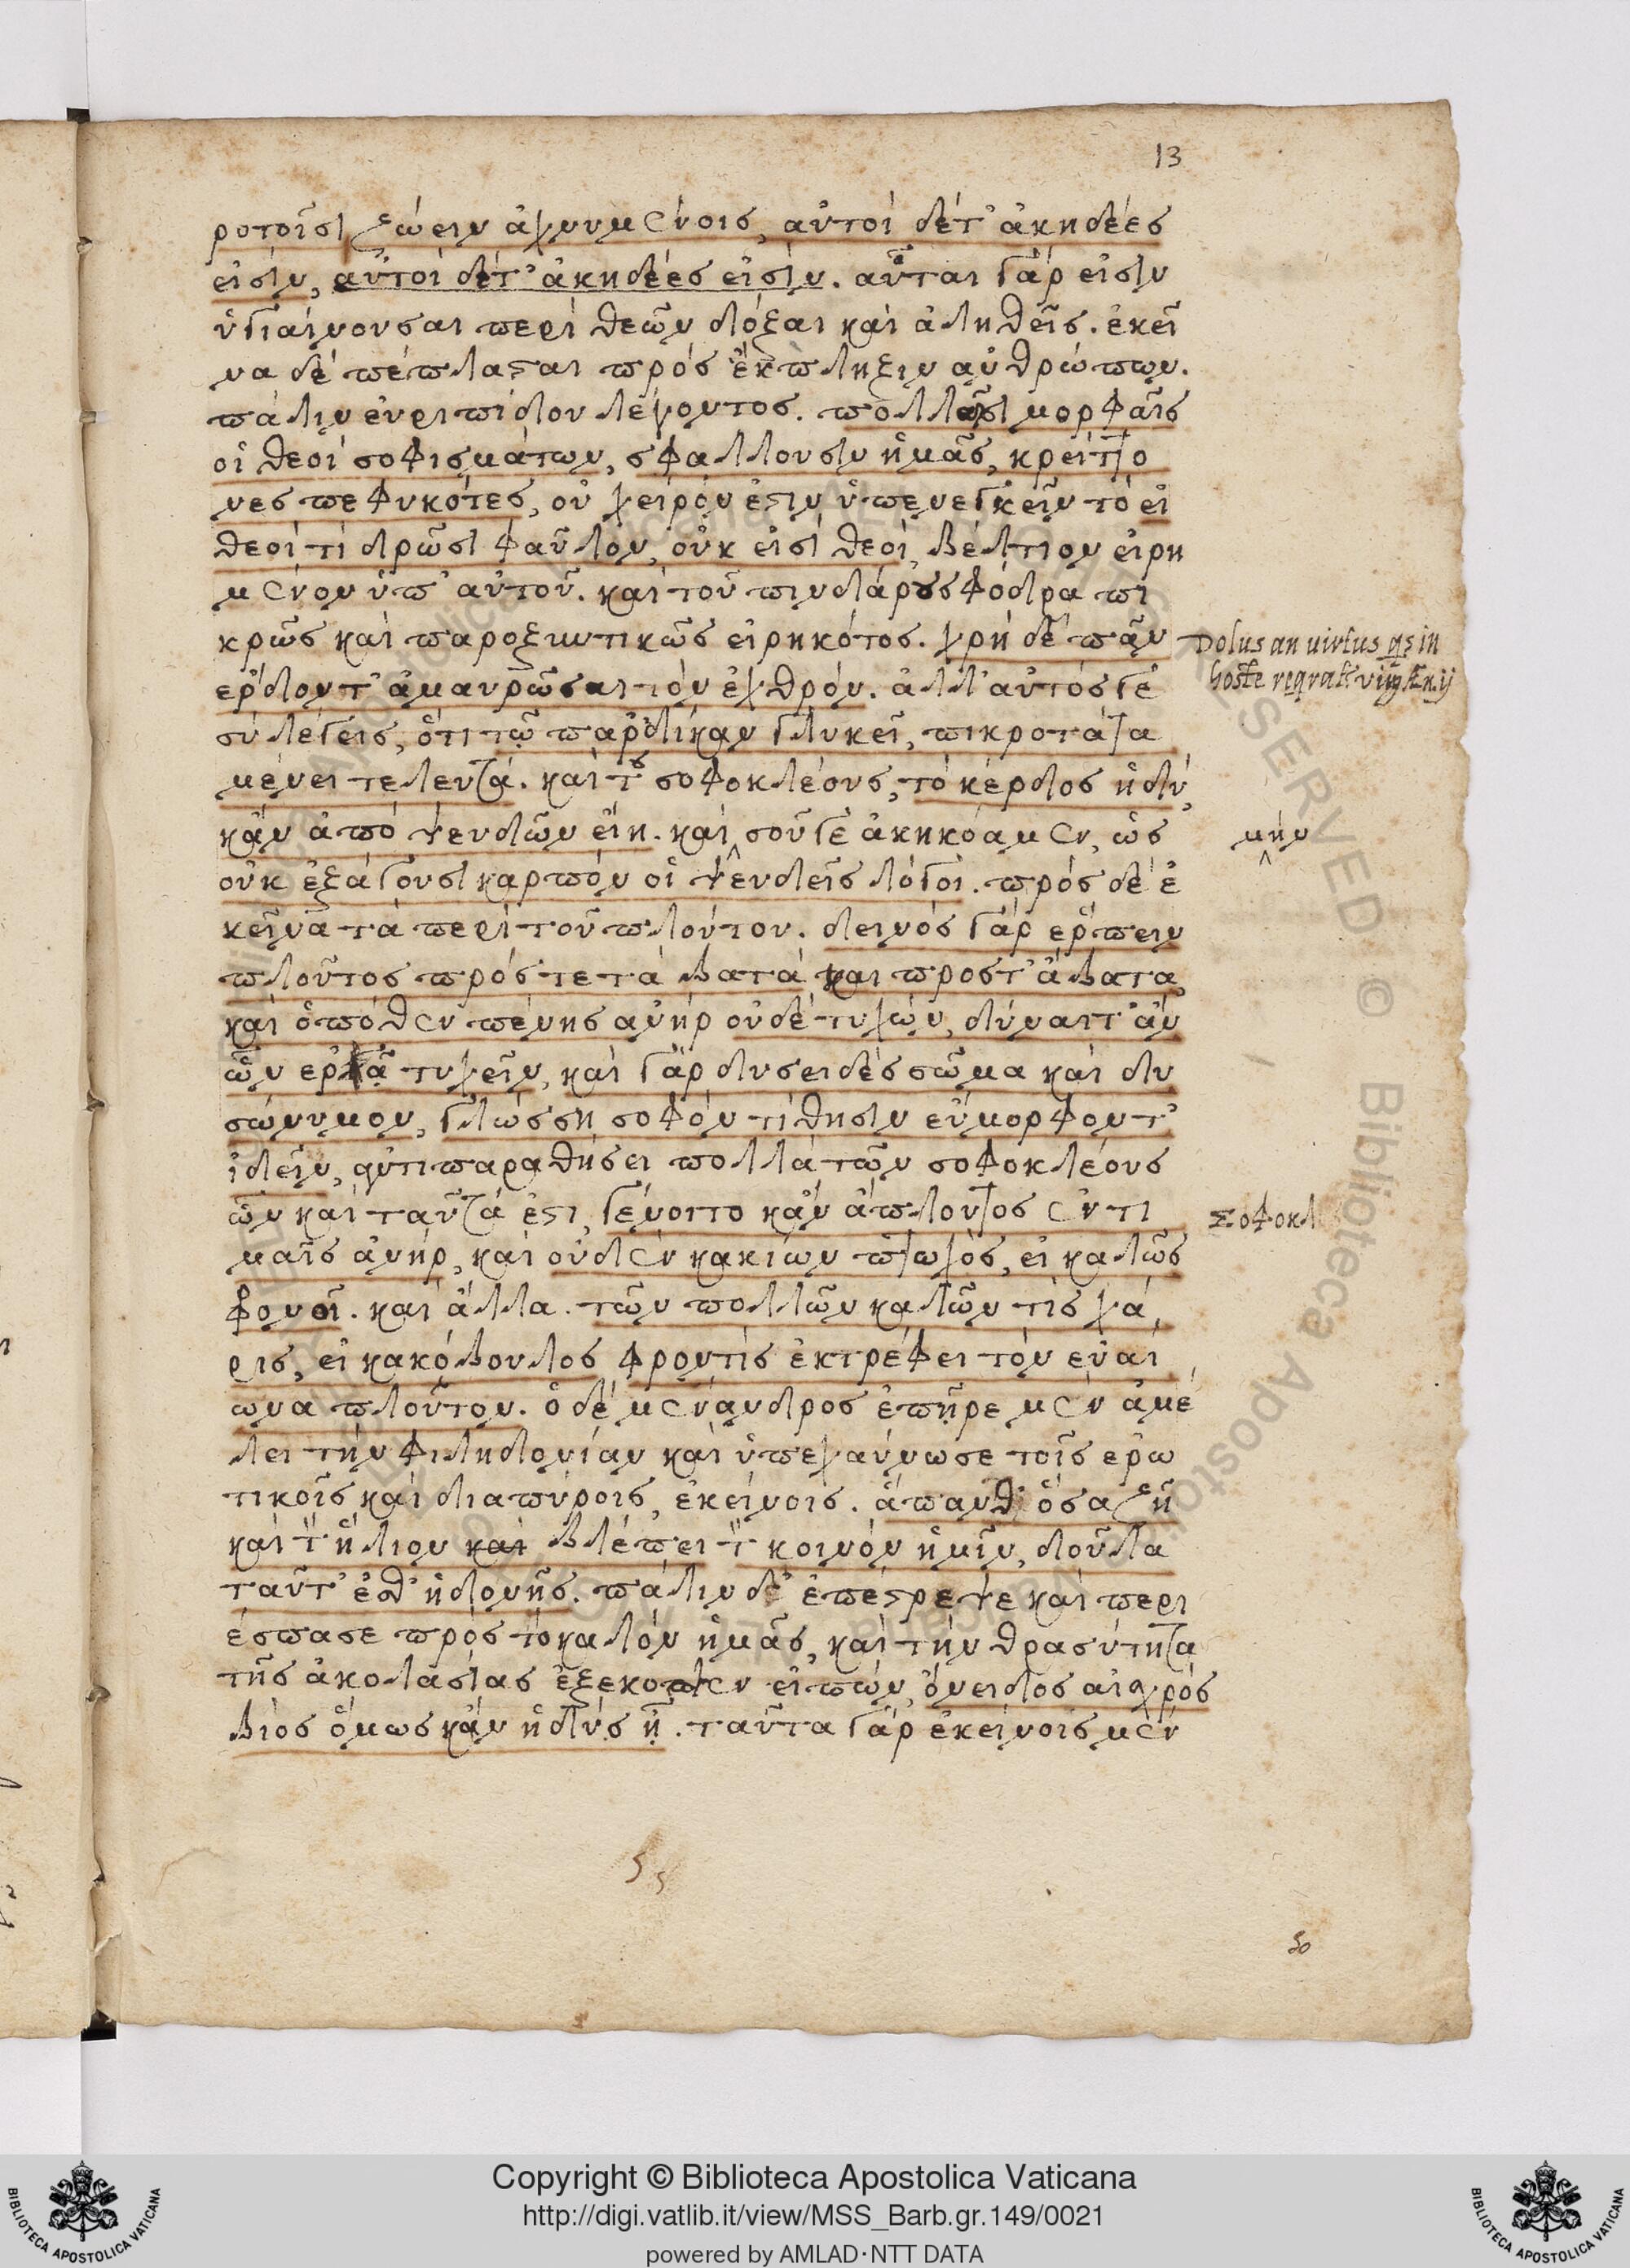 13
ροτοῖσι ζώειν ἀχνυμένοις, αὐτοὶ δέ τ' ἀκηδέες
εἰσίν, αὐτοὶ δέ τ' ἀκηδέες εἰσίν. αὗται γὰρ εἰσὶν
ὑγιαίνουσαι περὶ θεῶν δόξαι καὶ ἀληθεῖς. ἐκεῖ
να δὲ πέπλασται πρὸς ἔκπληξιν ἀνθρώπων.
πάλιν εὐριπίδου λέγοντος. πολλαῖσι μορφαῖς
οἱ θεοὶ σοφισμάτων, σφάλλουσιν ἡμᾶς, κρείττο
νες πεφυκότες, οὐ χεῖρόν ἐστιν ὑπενεγκεῖν τὸ εἰ
θεοί τι δρῶσι φαῦλον, οὐκ εἰσὶ θεοί, βέλτιον εἰρη
μένον ὑπ' αὐτοῦ. καὶ τοῦ πινδάρου σφόδρα πι
κρῶς καὶ παροξυντικῶς εἰρηκότος. χρὴ δὲ πᾶν
ἔρδοντ' ἀμαυρῶσαι τὸν ἐχθρόν. ἀλλ' αὐτός γε
σὺ λέγεις, ὅτι τῷ παρδίκαν γλυκεῖ, πικροτάτα
μένει τελευτά. καὶ τοῦ σοφοκλέους, τὸ κέρδος ἡδύ,
κἂν ἀπὸ ψευδῶν εἴη. καὶ σοῦ γε ἀκηκόαμεν, ὡς
οὐκ ἐξάγουσι καρπὸν οἱ ψευδεῖς λόγοι. πρὸς δὲ ἐ
κεῖνα τὰ περὶ τοῦ πλούτου. δεινὸς γὰρ ἕρπειν
πλοῦτος πρός τε τὰ βατὰ καὶ πρὸς τ' ἄβατα,
καὶ ὁπόθεν πένης ἀνὴρ οὐδὲ τυχὼν, δύναιτ' ἂν
ὧν ἐρᾷ τυχεῖν, καὶ γὰρ δυσειδὲς σῶμα καὶ δυ
σώνυμον, γλώσσῃ σοφὸν τίθησιν εὔμορφον τ'
ἰδεῖν, ἀντιπαραθήσει πολλὰ τῶν σοφοκλέους
ὧν καὶ ταῦτά ἐστι, γένοιτο κἂν ἄπλουτος ἐν τι
μαῖς ἀνήρ, καὶ οὐδὲν κακίων πτωχός, εἰ καλῶς
φρονεῖ. καὶ ἄλλα. τῶν πολλῶν καλῶν τίς χά
ρις, εἰ κακόβουλος φροντὶς ἐκτρέφει τὸν εὐαί
ωνα πλοῦτον. ὁ δὲ μένανδρος ἐπῆρε μὲν ἀμέ
λει τὴν φιληδονίαν καὶ ὑπεχαύνωσε τοῖς ἐρω
τικοῖς καὶ διαπύροις, ἐκείνοις. ἅπανθ' ὅσα ζῇ
καὶ τὸν ἥλιον βλέπει τὸν κοινὸν ἡμῖν, δοῦλα
ταῦτ' ἔσθ' ἡδονῆς. πάλιν δ' ἐπέστρεψε καὶ περι
έσπασε πρὸς τὸ καλὸν ἡμᾶς, καὶ τὴν θρασύτητα
τῆς ἀκολασίας ἐξέκοψεν εἰπών, ὄνειδος αἰσχρὸς
βίος ὅμως κἂν ἡδὺς ᾖ. ταῦτα γὰρ ἐκείνοις μὲν
Dolus an uirtus qs in
hoste
μὴν
σοφοκλ
Copyright © Biblioteca Apostolica Vaticana
http://digi.vatlib.it/view/MSS_Barb.gr.149/0021
powered by AMLAD·NTT DATA
BIBLIOTECA APOSTOLICA VATICANA
BIBLIOTECA APOSTOLICA VATICANA